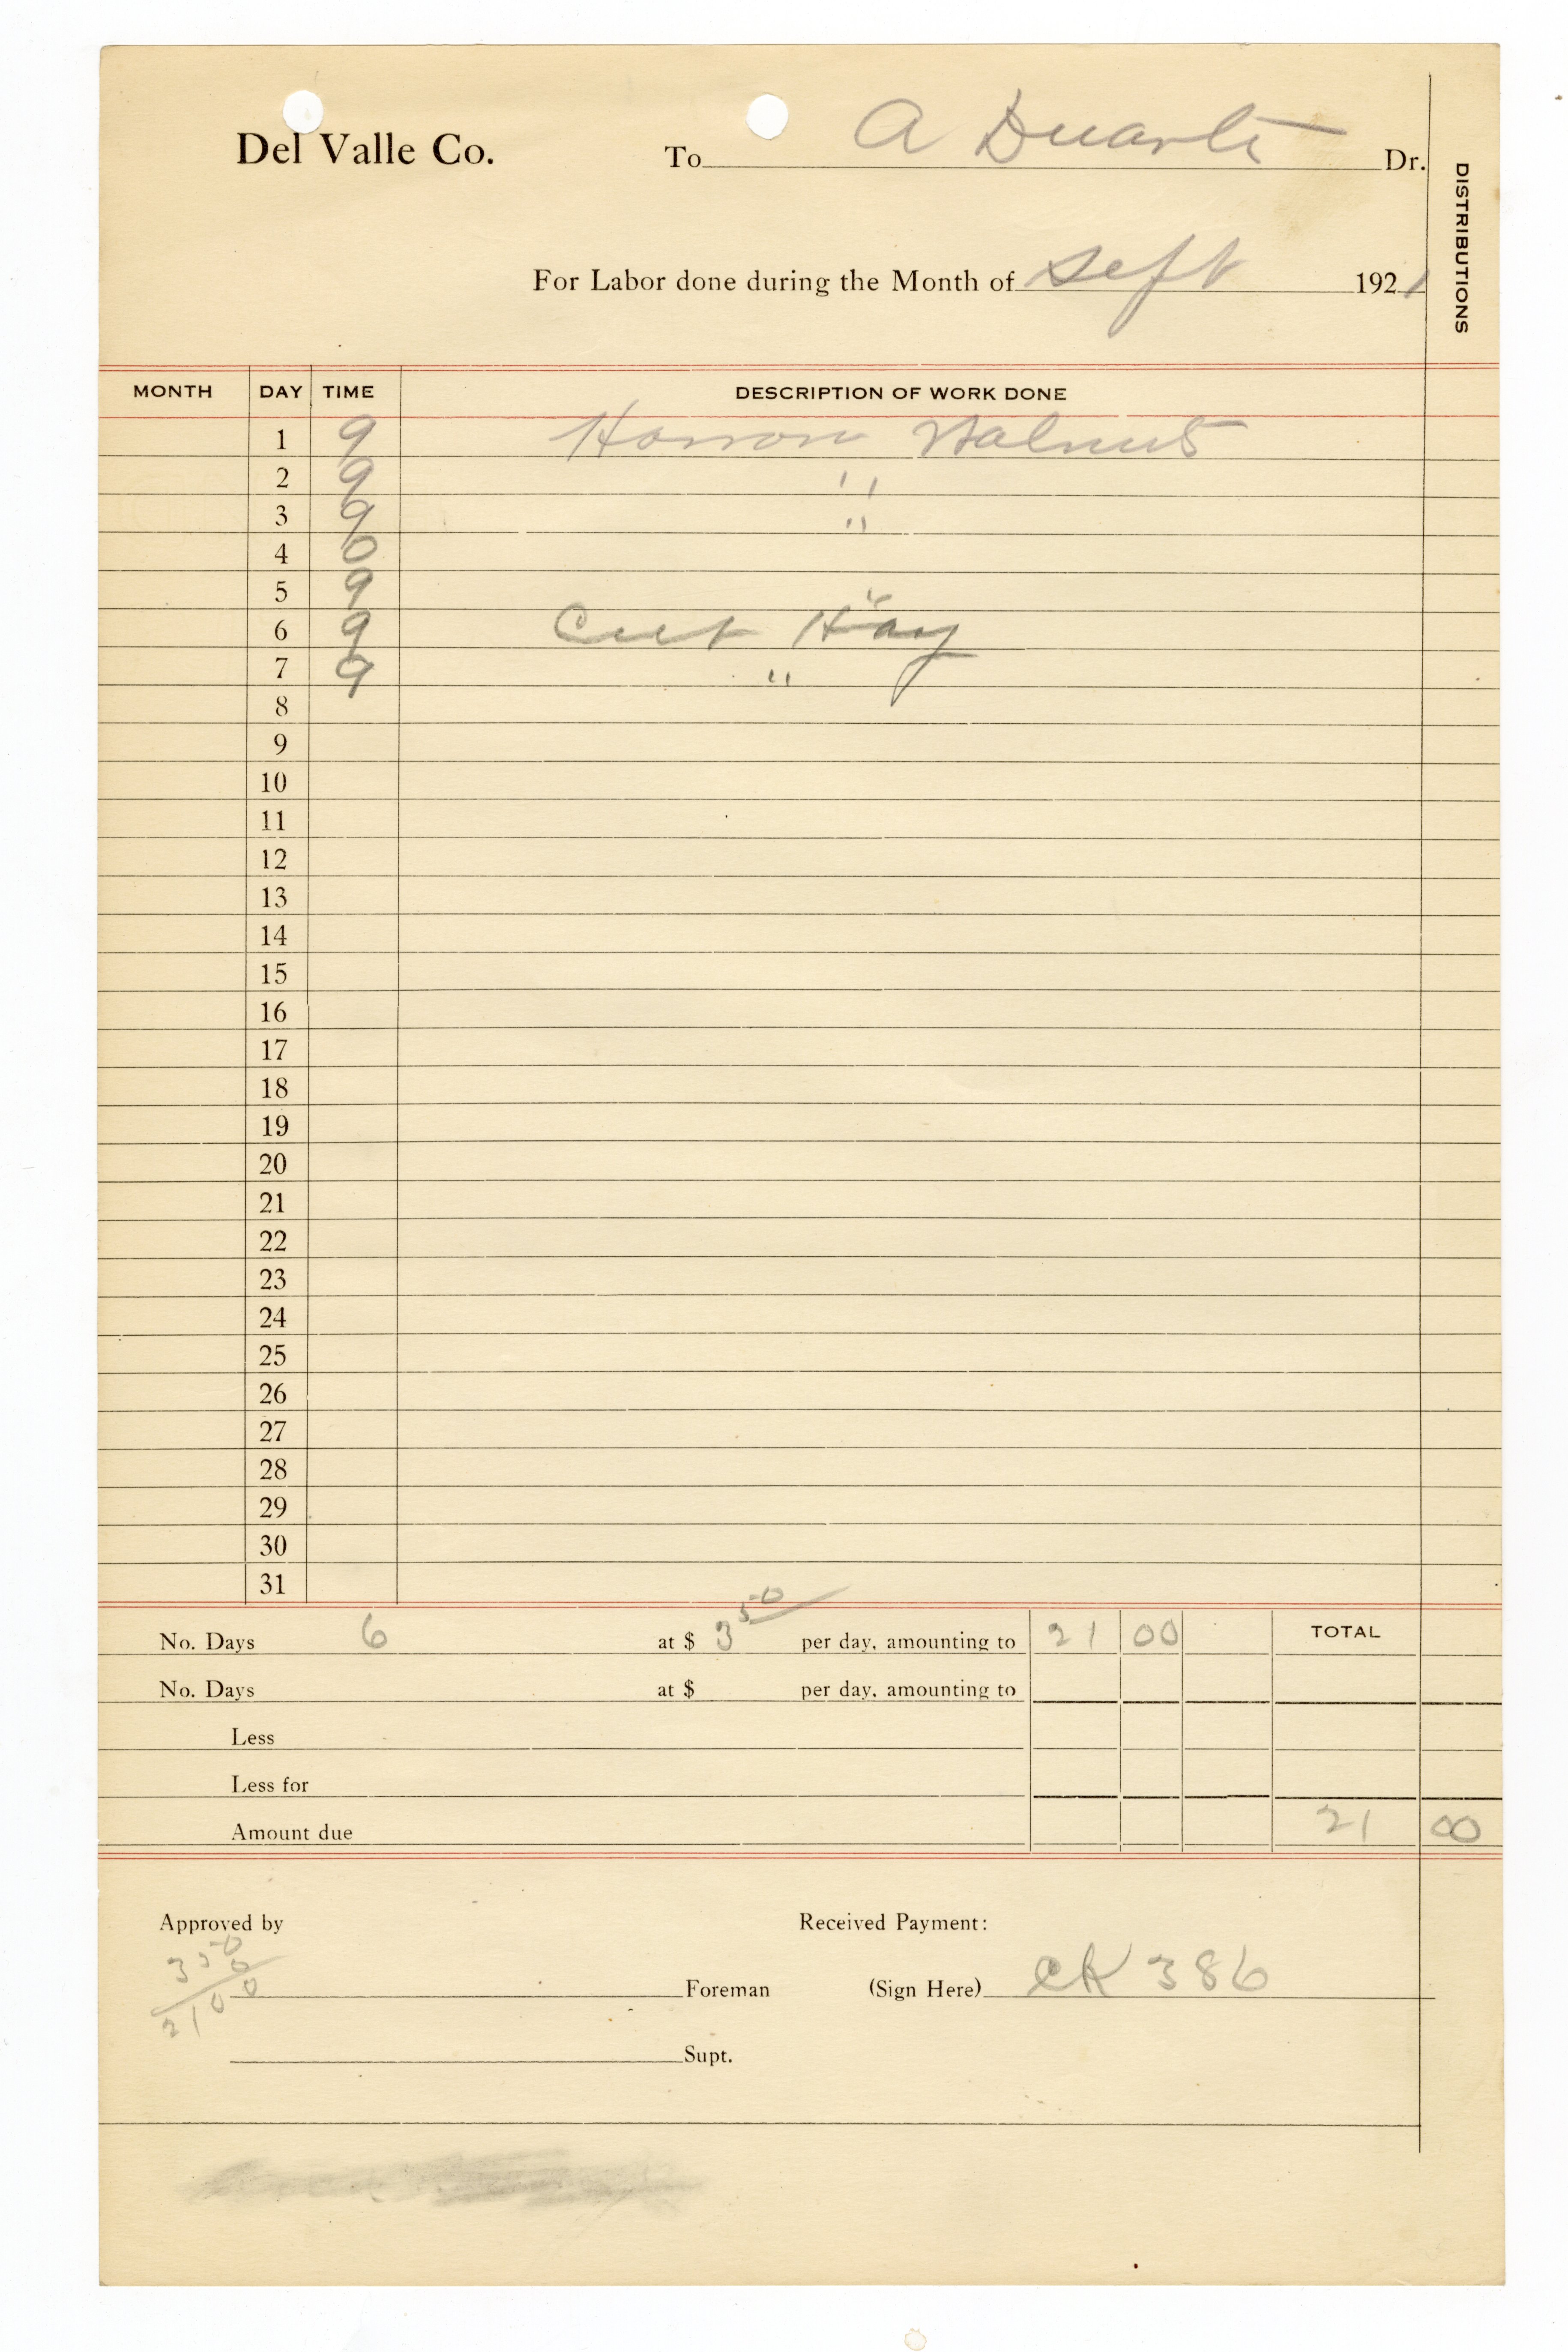 Del Valle Co. To A Duarte Dr.
DISTRIBUTIONS
For Labor done during the Month of Sept 1921
MONTH DAY TIME DESCRIPTION OF WORK DONE
1 9 Harrow Walnuts
2 9 ''
3 9 ''
4 0
5 9 ''
6 9 Cut Hay
7 9 ''
8
9
10
11
12
13
14
15
16
17
18
19
20
21
22
23
24
25
26
27
28
29
30
31
No. Days 6 at $ 3 50 per day, amounting to 21 00 TOTAL
No. Days at $ per day, amounting to
Less
Less for
Amount due 21 00
Approved by Received Payment:
3 50
6
Foreman (Sign Here) CK 386
21 00
Supt.